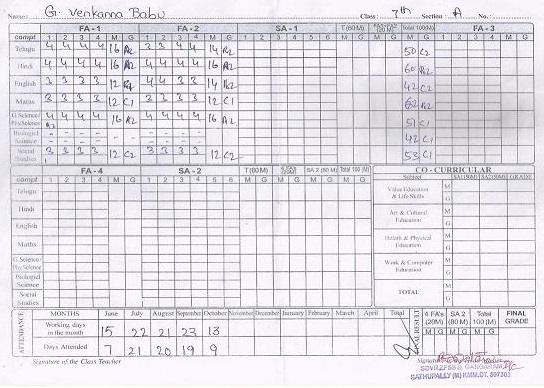 Name: G. Venkanna Babu Class: 7th Section: A No.:
FA - 1 FA - 2 SA - 1 T (80 M) Total 100(M) FA - 3
compt 1 2 3 4 M G 1 2 3 4 M G 1 2 3 4 5 6 M G M G M G 1 2 3 4 M G
Telugu 4 4 4 4 16 A2 3 3 4 4 14 B2 50 C2
Hindi 4 4 4 4 16 A2 4 4 4 4 16 A2 60 B2
English 3 3 3 3 12 4 4 3 3 14 B2 42 C2
Maths 3 3 3 3 12 C1 3 3 3 3 12 C1 62
G.Science/ Phy.Science 4 4 4 4 16 A2 4 4 4 4 16 A2 51 C1
Biological Science - - - - - - - - 42 C1
Social Studies 3 3 3 3 12 C2 3 3 3 3 12 C2 53 C1
FA - 4 SA - 2 T (80 M) SA 2 (80 M) Total 100 (M) CO - CURRICULAR
compt 1 2 3 4 M G 1 2 3 4 5 6 M G M G M G M G Subject SA1(50M) SA2(50M) GRADE
Telugu
Hindi
English
Maths
G.Science/ Phy.Science
Biological Science
Social Studies
Value Education & Life Skills M G
Art & Cultural Education M G
Helath & Physical Education M G
Work & Computer Education M G
TOTAL M G
ATTENDANCE MONTHS June July August September October November December January February March April Total
Working days in the month 15 22 21 23 13
Days Attended 7 21 20 19 9
FINAL RESULT 4 FA's (20M) SA 2 (80 M) Total 100 (M) FINAL GRADE
M G M G M G
Signature of the Class Teacher
SATHUPALLY (M) KMM.DT. 507303